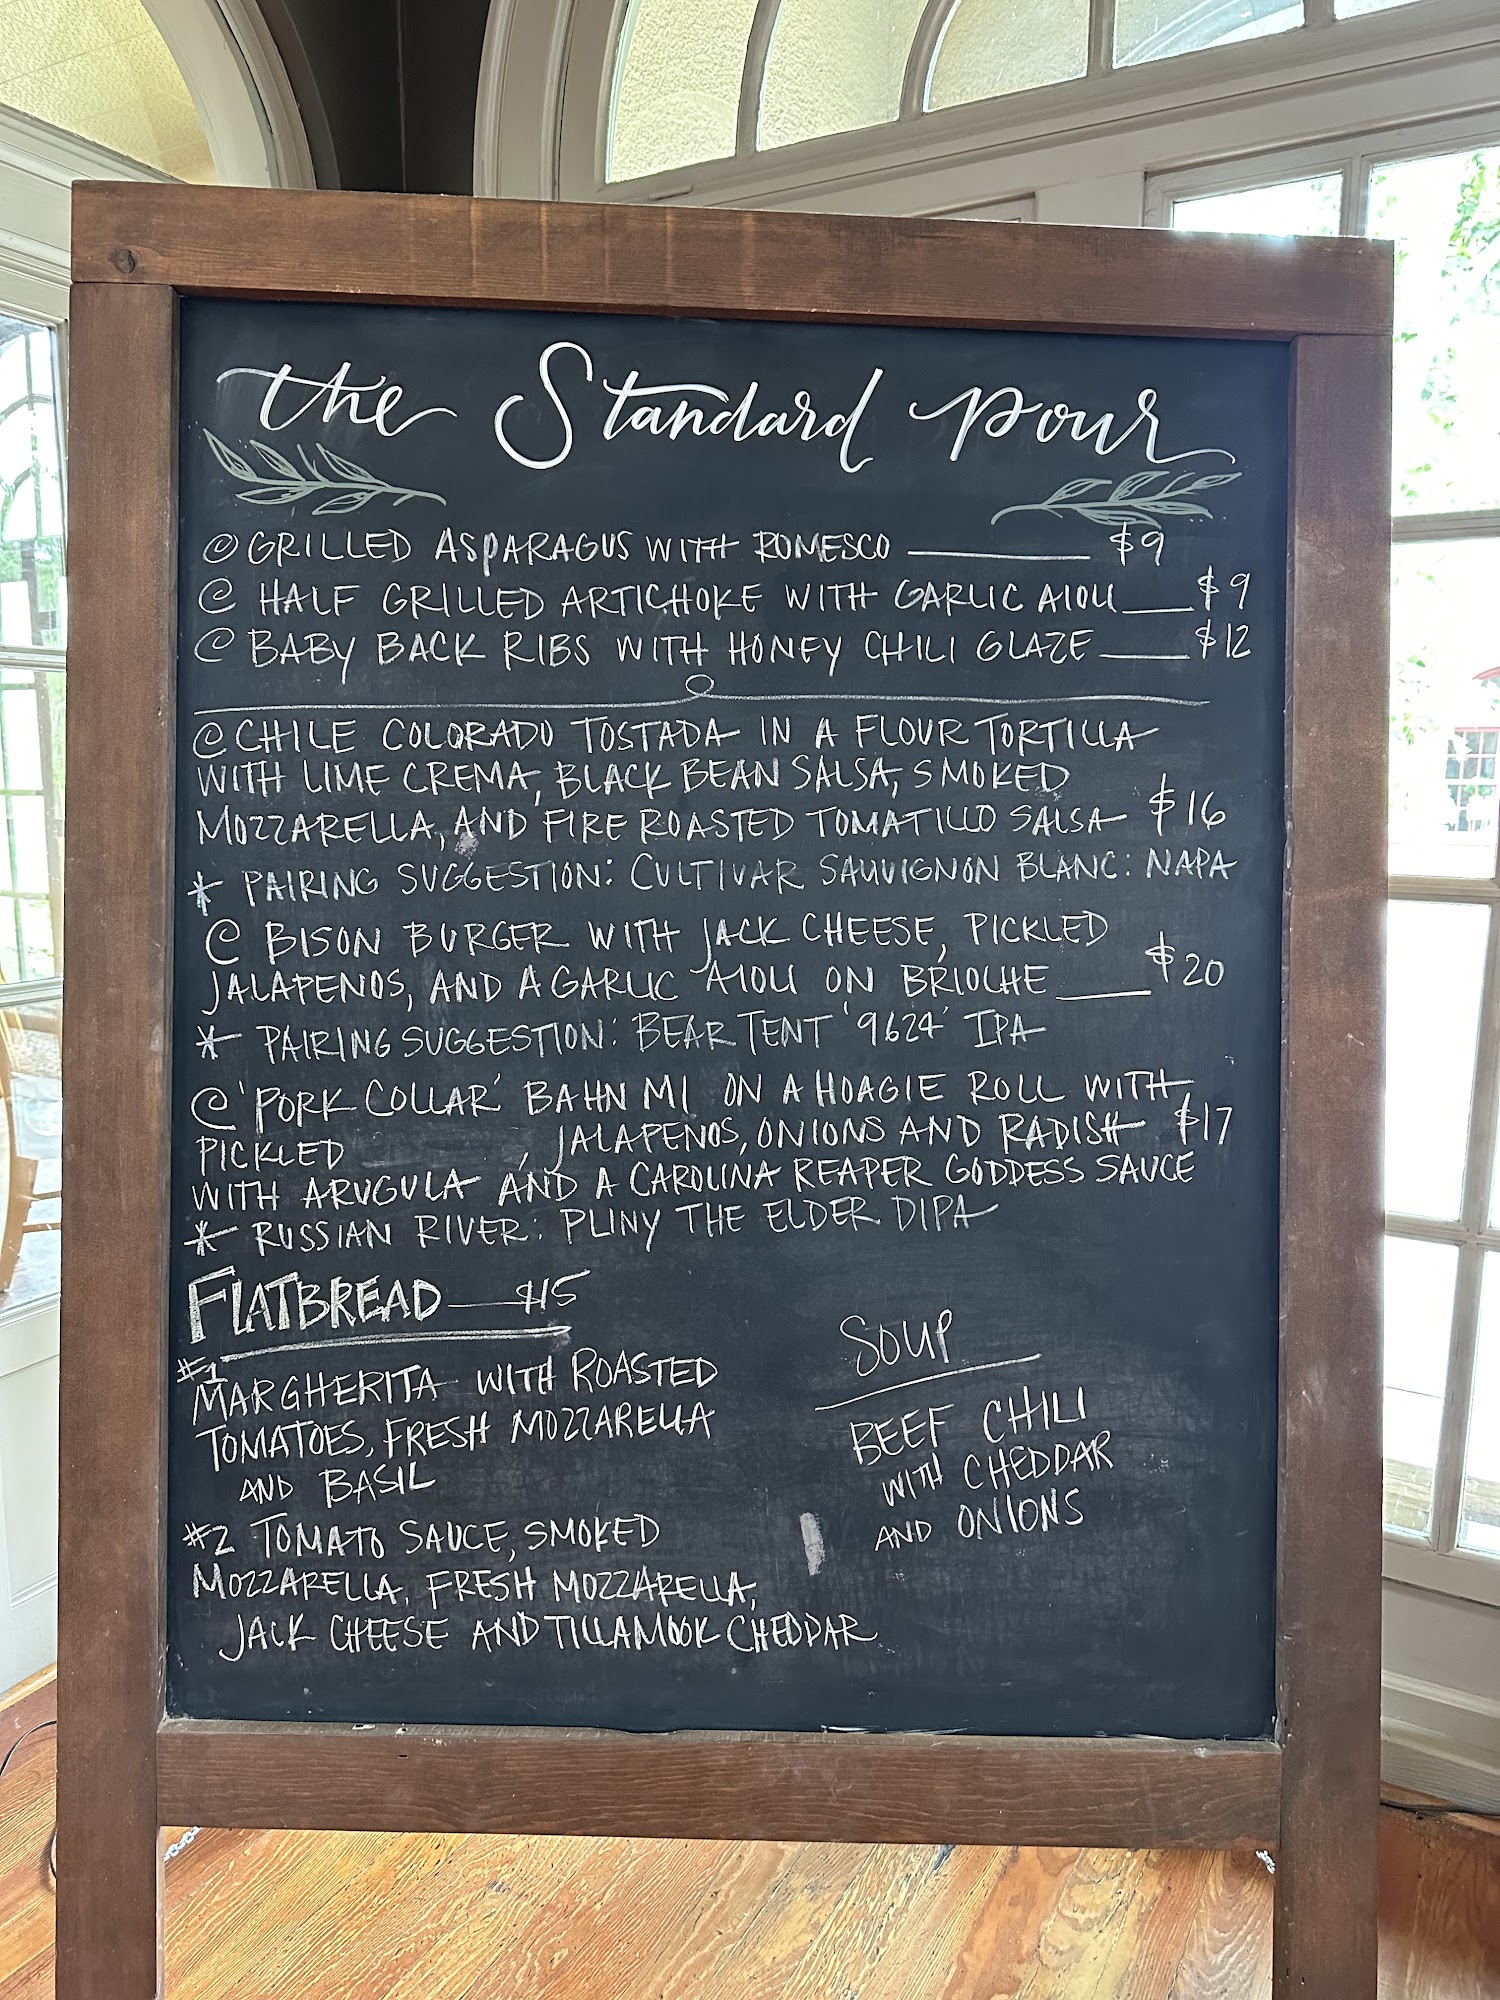 the Standard pour
@ GRILLED ASPARAGUS WITH ROMESCO $9
@ HALF GRILLED ARTICHOKE WITH GARLIC AIOLI $9
@ BABY BACK RIBS WITH HONEY CHILI GLAZE $12
@ CHILE COLORADO TOSTADA IN A FLOUR TORTILLA
WITH LIME CREMA, BLACK BEAN SALSA, SMOKED
MOZZARELLA, AND FIRE ROASTED TOMATILLO SALSA $16
* PAIRING SUGGESTION: CULTIVAR SAUVIGNON BLANC: NAPA
@ BISON BURGER WITH JACK CHEESE, PICKLED
JALAPENOS, AND A GARLIC AIOLI ON BRIOCHE $20
* PAIRING SUGGESTION: BEAR TENT '9624' IPA
@ 'PORK COLLAR' BAHN MI ON A HOAGIE ROLL WITH
PICKLED , JALAPENOS, ONIONS AND RADISH $17
WITH ARUGULA AND A CAROLINA REAPER GODDESS SAUCE
* RUSSIAN RIVER: PLINY THE ELDER DIPA
FLATBREAD $15
#1
MARGHERITA WITH ROASTED
TOMATOES, FRESH MOZZARELLA
AND BASIL
#2 TOMATO SAUCE, SMOKED
MOZZARELLA, FRESH MOZZARELLA,
JACK CHEESE AND TILLAMOOK CHEDDAR
SOUP
BEEF CHILI
WITH CHEDDAR
AND ONIONS